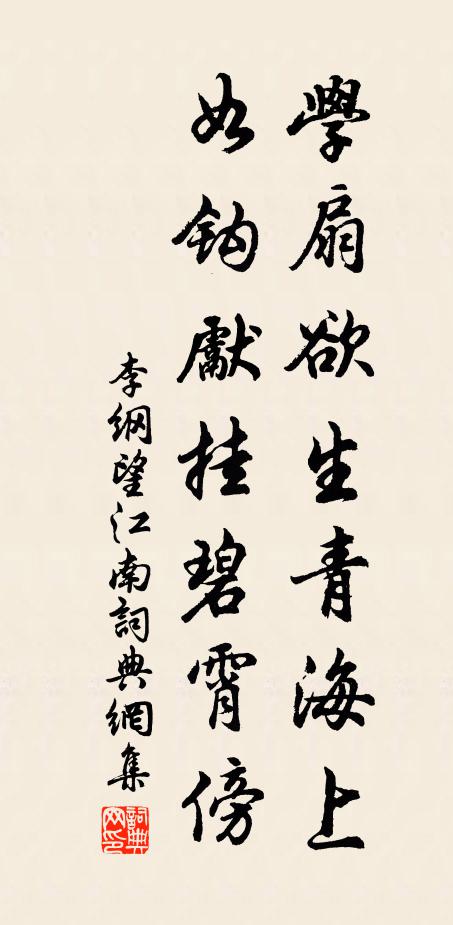 學扇欲生青海上
如鈎獻挂碧霄傍
李綱望江南詞典網集
詞典
网印